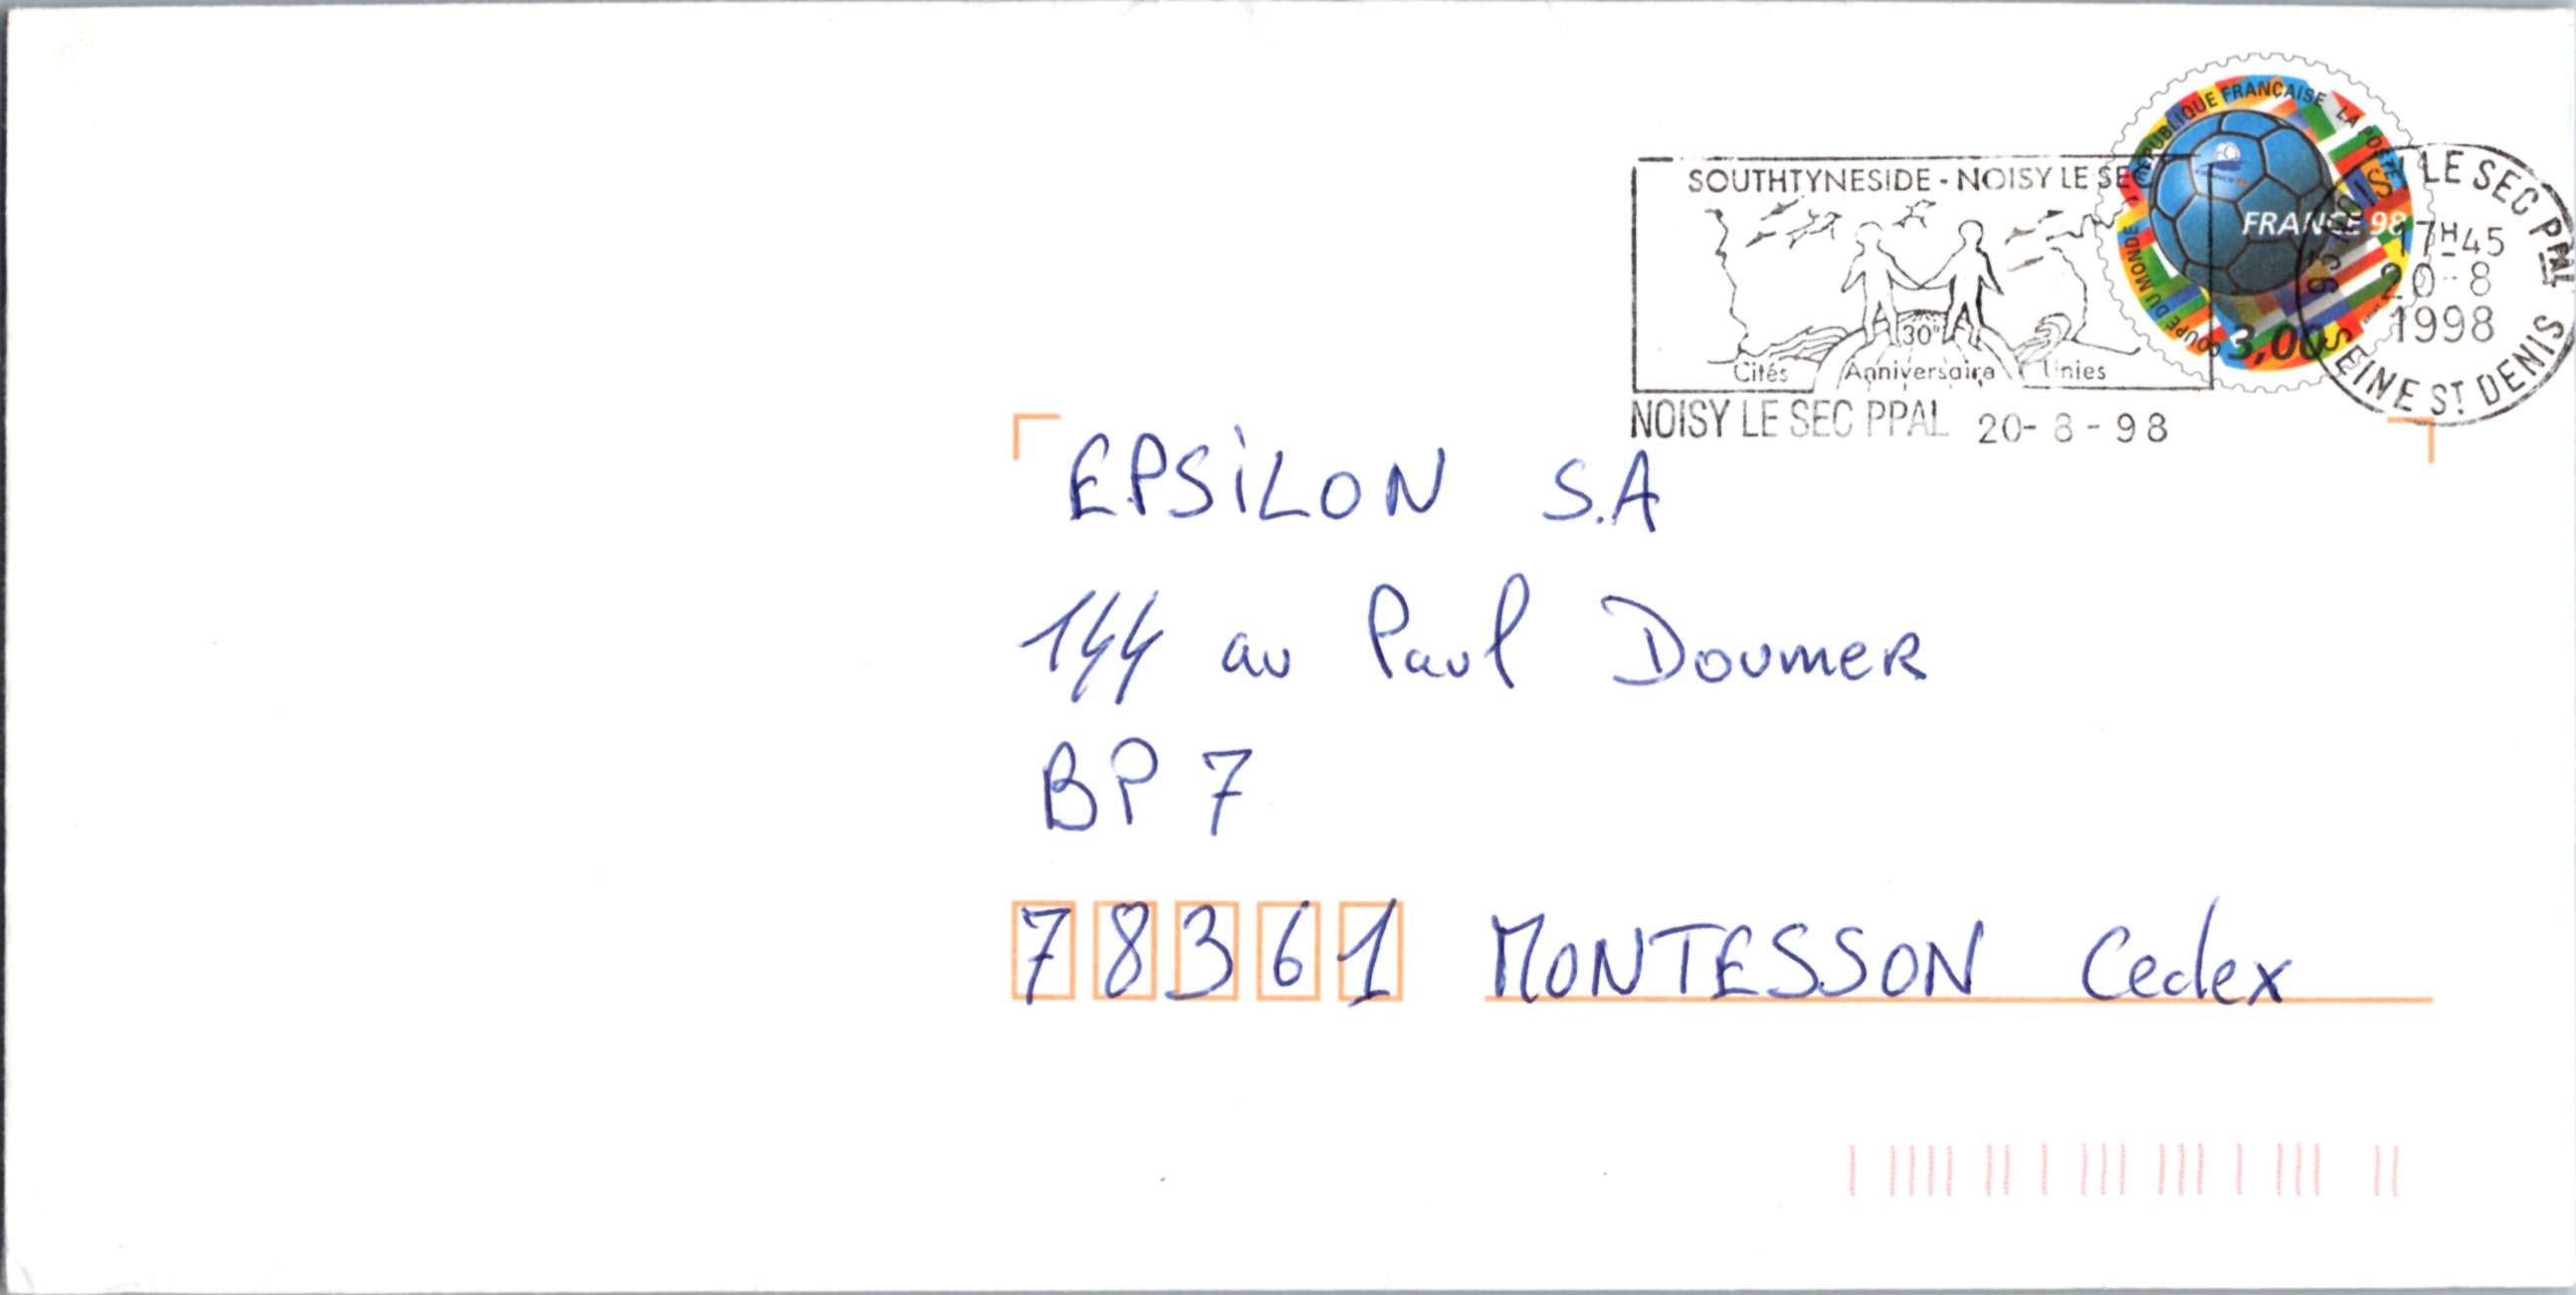 SOUTHTYNESIDE - NOISY LE SEC
30è
Cités Anniversaire Unies
NOISY LE SEC PPAL 20-8-98
RÉPUBLIQUE FRANÇAISE LA POSTE
COUPE DU MONDE
FRANCE 98
3,00
93 NOISY LE SEC PPAL
17H45
20-8
1998
SEINE ST DENIS
EPSILON S.A
144 au Paul Doumer
BP 7
78361 MONTESSON Cedex